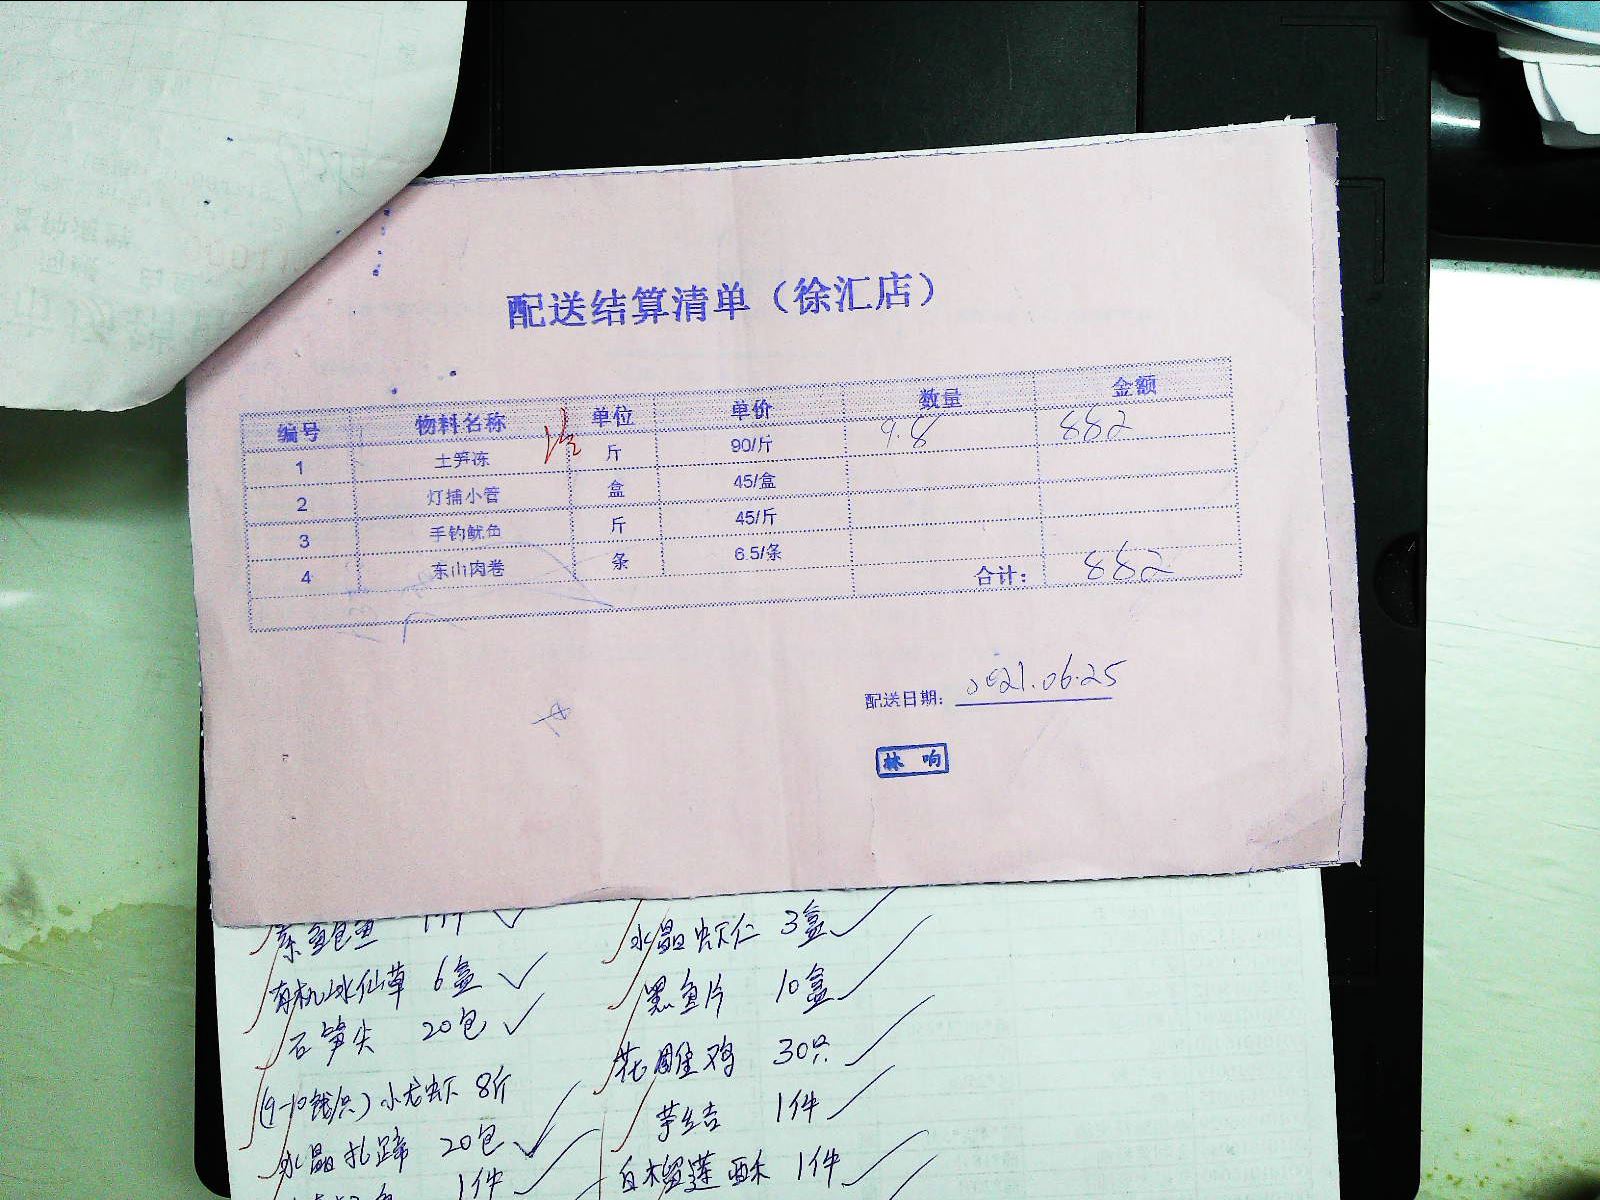 配送结算清单（徐汇店）
编号 物料名称 单位 单价 数量 金额
1 土笋冻 斤 90/斤 9.8 882
2 灯捕小管 盒 45/盒
3 手钓鱿鱼 斤 45/斤
4 东山肉卷 条 6.5/条
合计： 882
配送日期： 2021.06.25
林 响
水晶虾仁 3盒
有机冰仙草 6盒
黑鱼片 10盒
石笋尖 20包
花雕鸡 30只
(9-10钱/只)小龙虾 8斤
芋丝吉 1件
水晶扎蹄 20包
榴莲酥 1件
1件